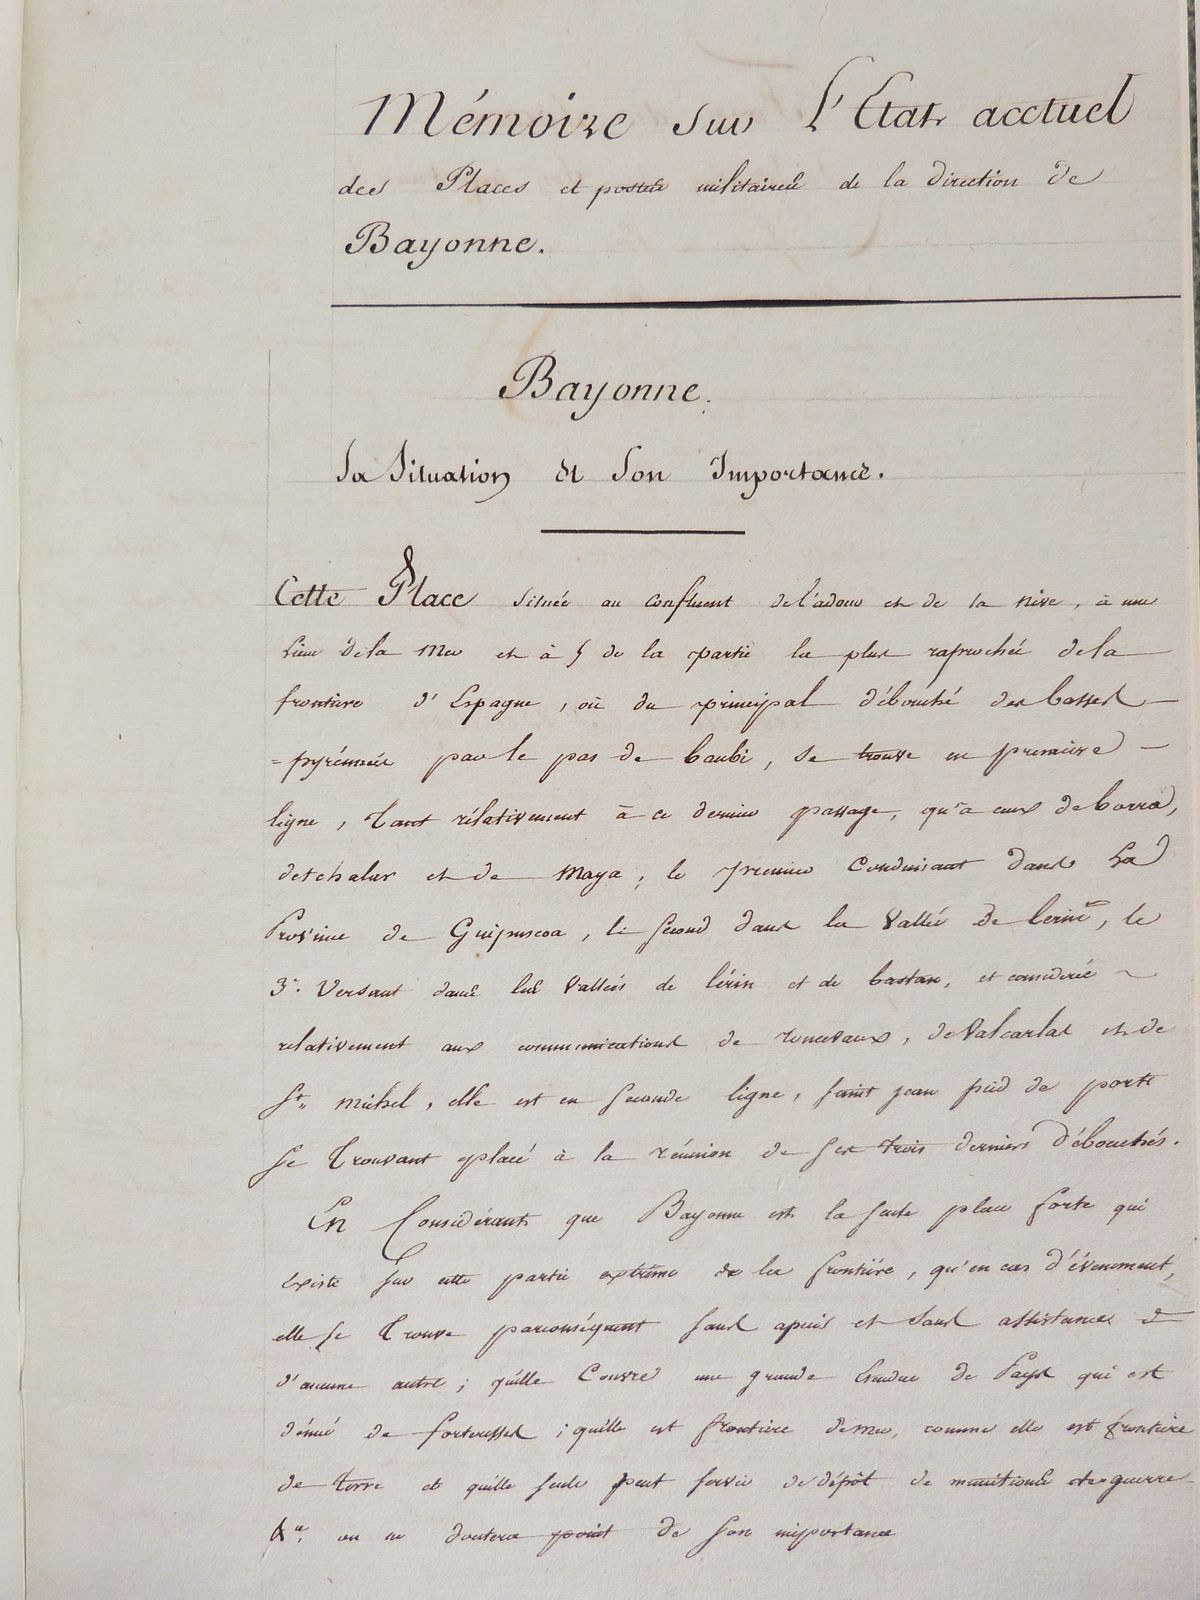 Mémoire sur L'Etat acctuel
des Places et postes militaires de la direction de
Bayonne.
Bayonne.
Sa Situation et Son Importance.
Cette Place située au confluent de l'adour et de la nive, à une
lieue de la Mer et à 5 de la partie la plus raprochée de la
frontiere d'Espagne, où du principal débouché des basses
=pyrénnées par le pas de baubi, se trouve en premiere
ligne, tant rélativement à ce dernier passage, qu'a ceux de
detchalar et de Maya; le premier Conduisant dans La
Province de Guipuscoa, le second dans la Vallée de lerin, le
3e. Versant dans les Vallées de lérin et de bastan, et considerée
relativement aux communications de roncevaux, de Valcarlos et de
St. michel, elle est en seconde ligne, saint jean pied de port
se trouvant placé à la réunion de ses trois derniers débouchés.
En Considérant que Bayonne est la seule place forte qui
existe sur cette partie extrême de la frontiére, qu'en cas d'évenement,
elle se trouve parconséquent sans apuis et sans assistance
d'aucune autre; qu'elle Couvre une grande étendue de Pays qui est
dénué de forteresses; qu'elle est frontiere de mer, comme elle est frontiere
de terre et qu'elle seule peut servir de dépôt de munitions de guerre
&a. on ne doutera point de son importance